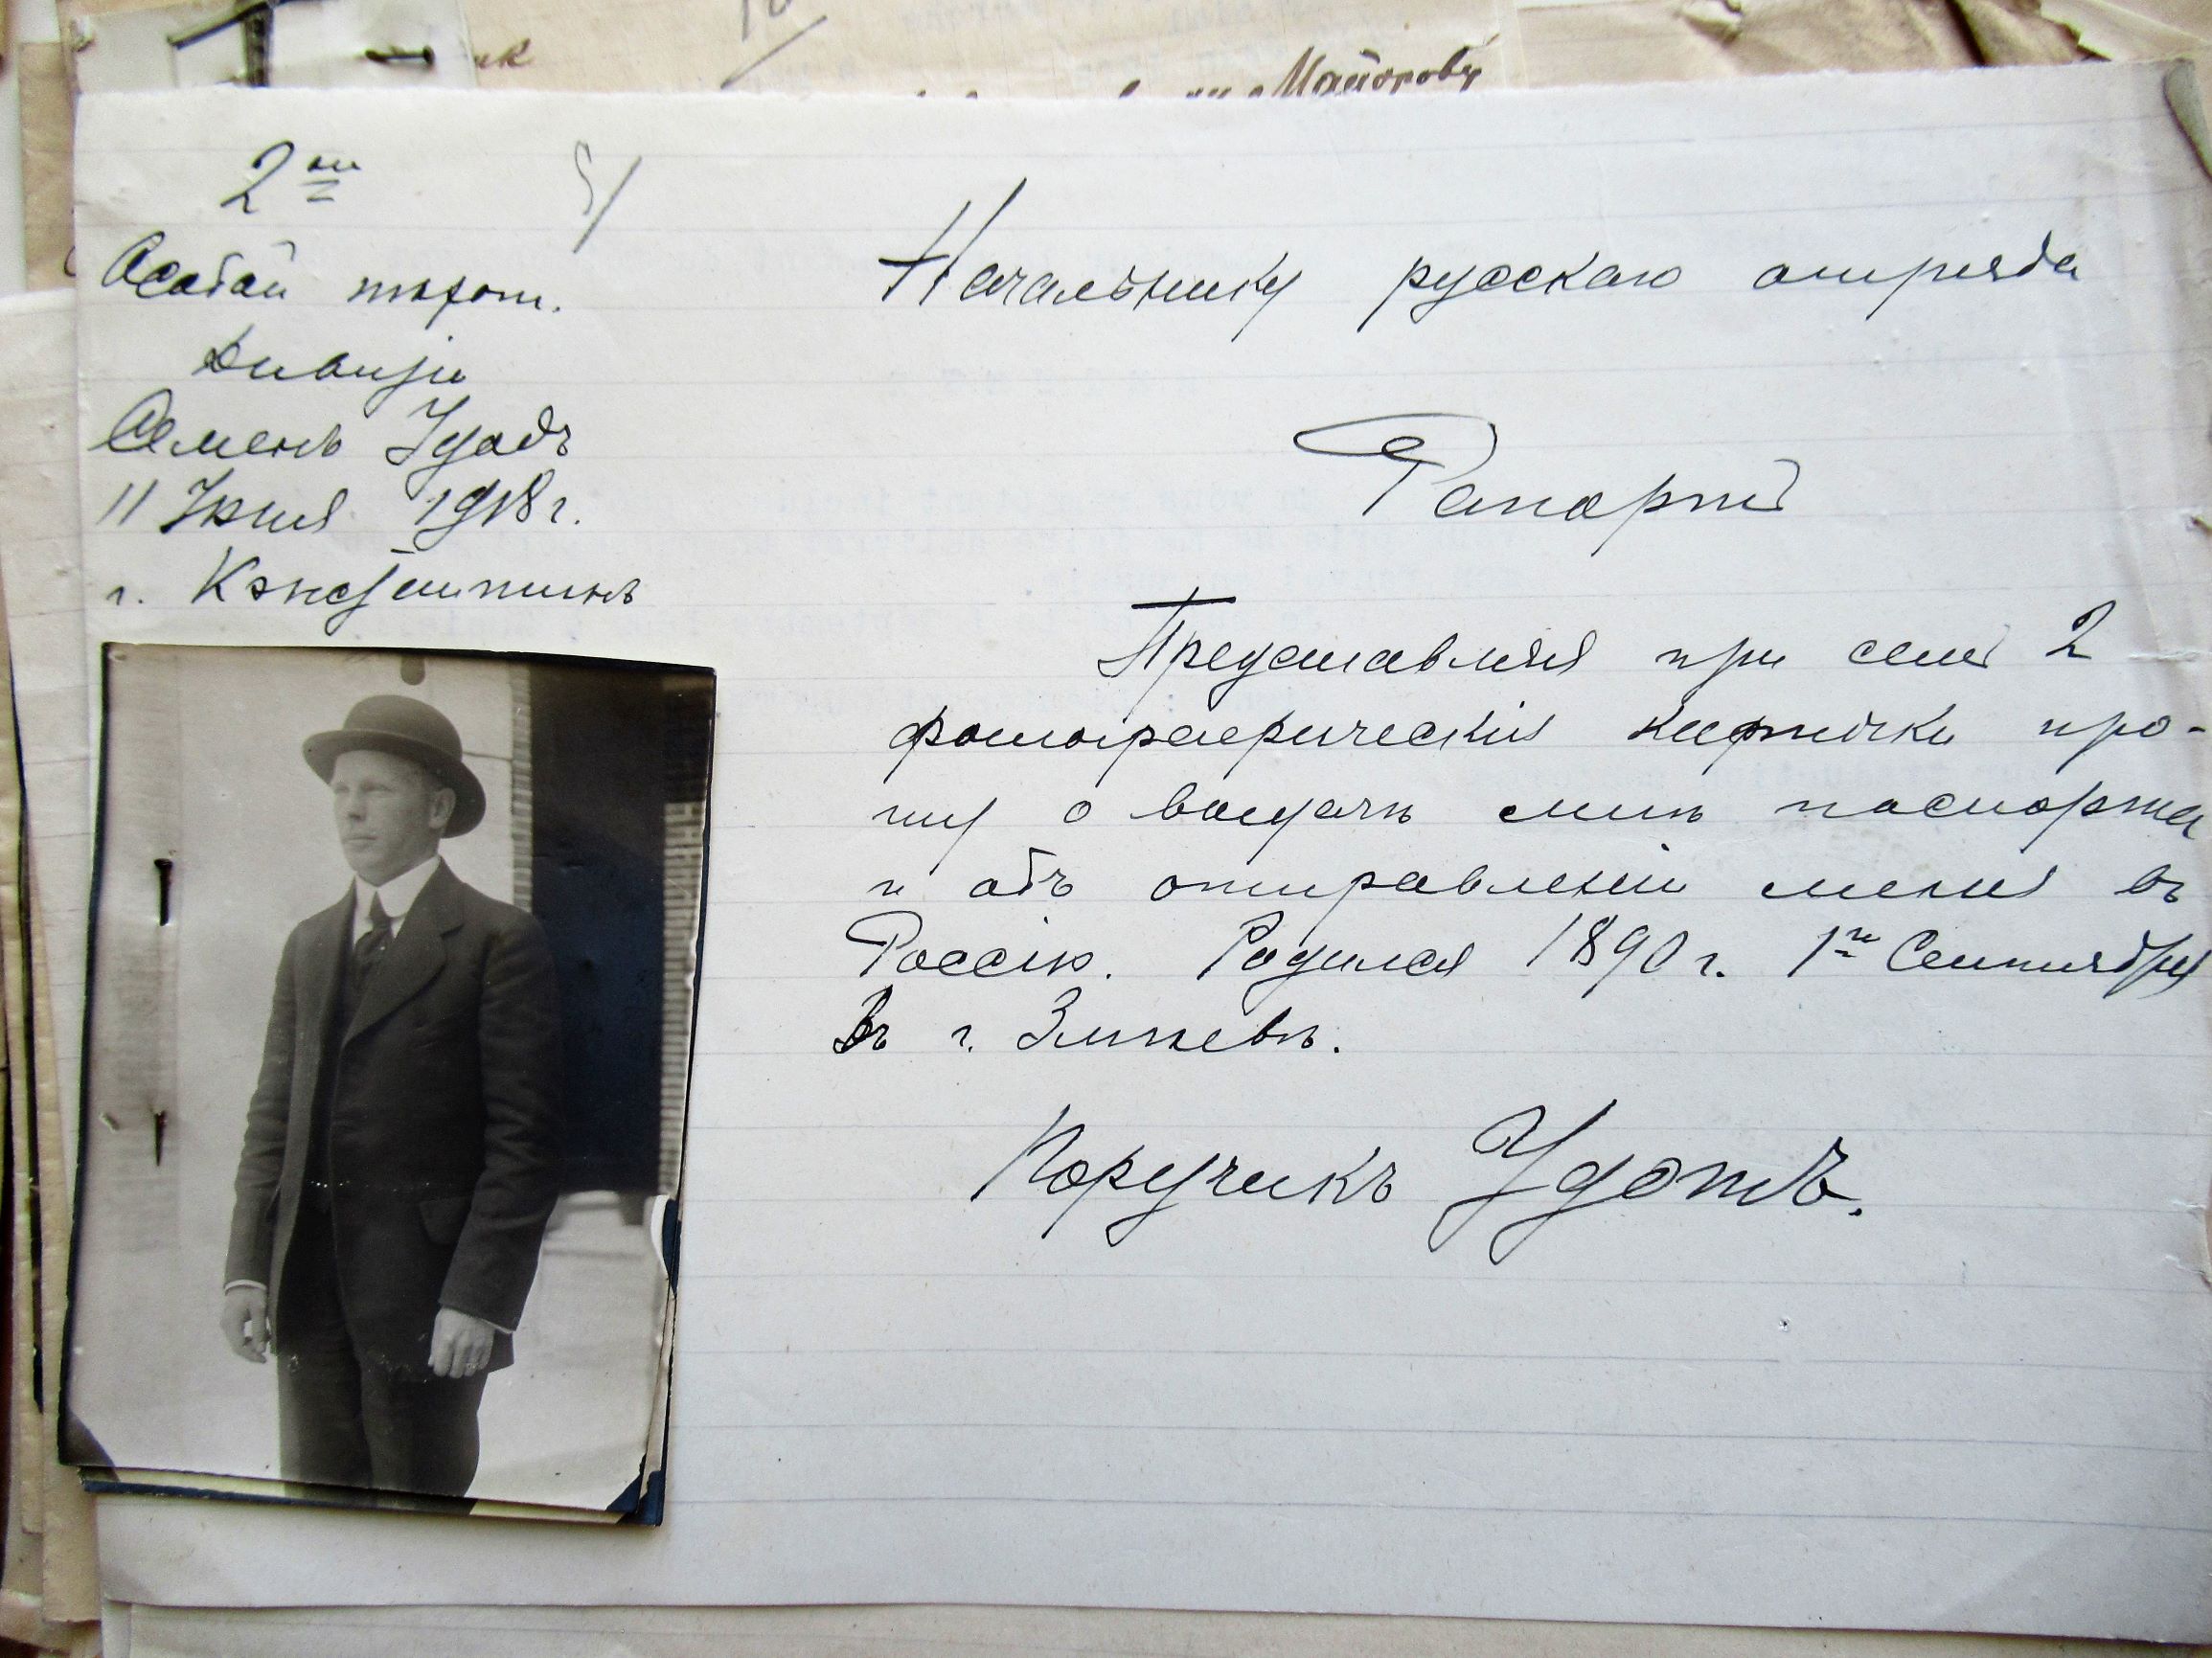 Майорову
2ой
Особой пѣхот.
дивизіи
Семенъ Удодъ
11 Іюня 1918 г.
г. Константинъ
Начальнику русскаго отряда
Рапортъ
Представляя при семъ 2
фотографическія карточки про-
шу о выдачѣ мнѣ паспорта
и объ отправленіи меня въ
Россію. Родился 1890 г. 1го Сентября
въ г. Змѣевѣ.
Поручикъ Удотъ.